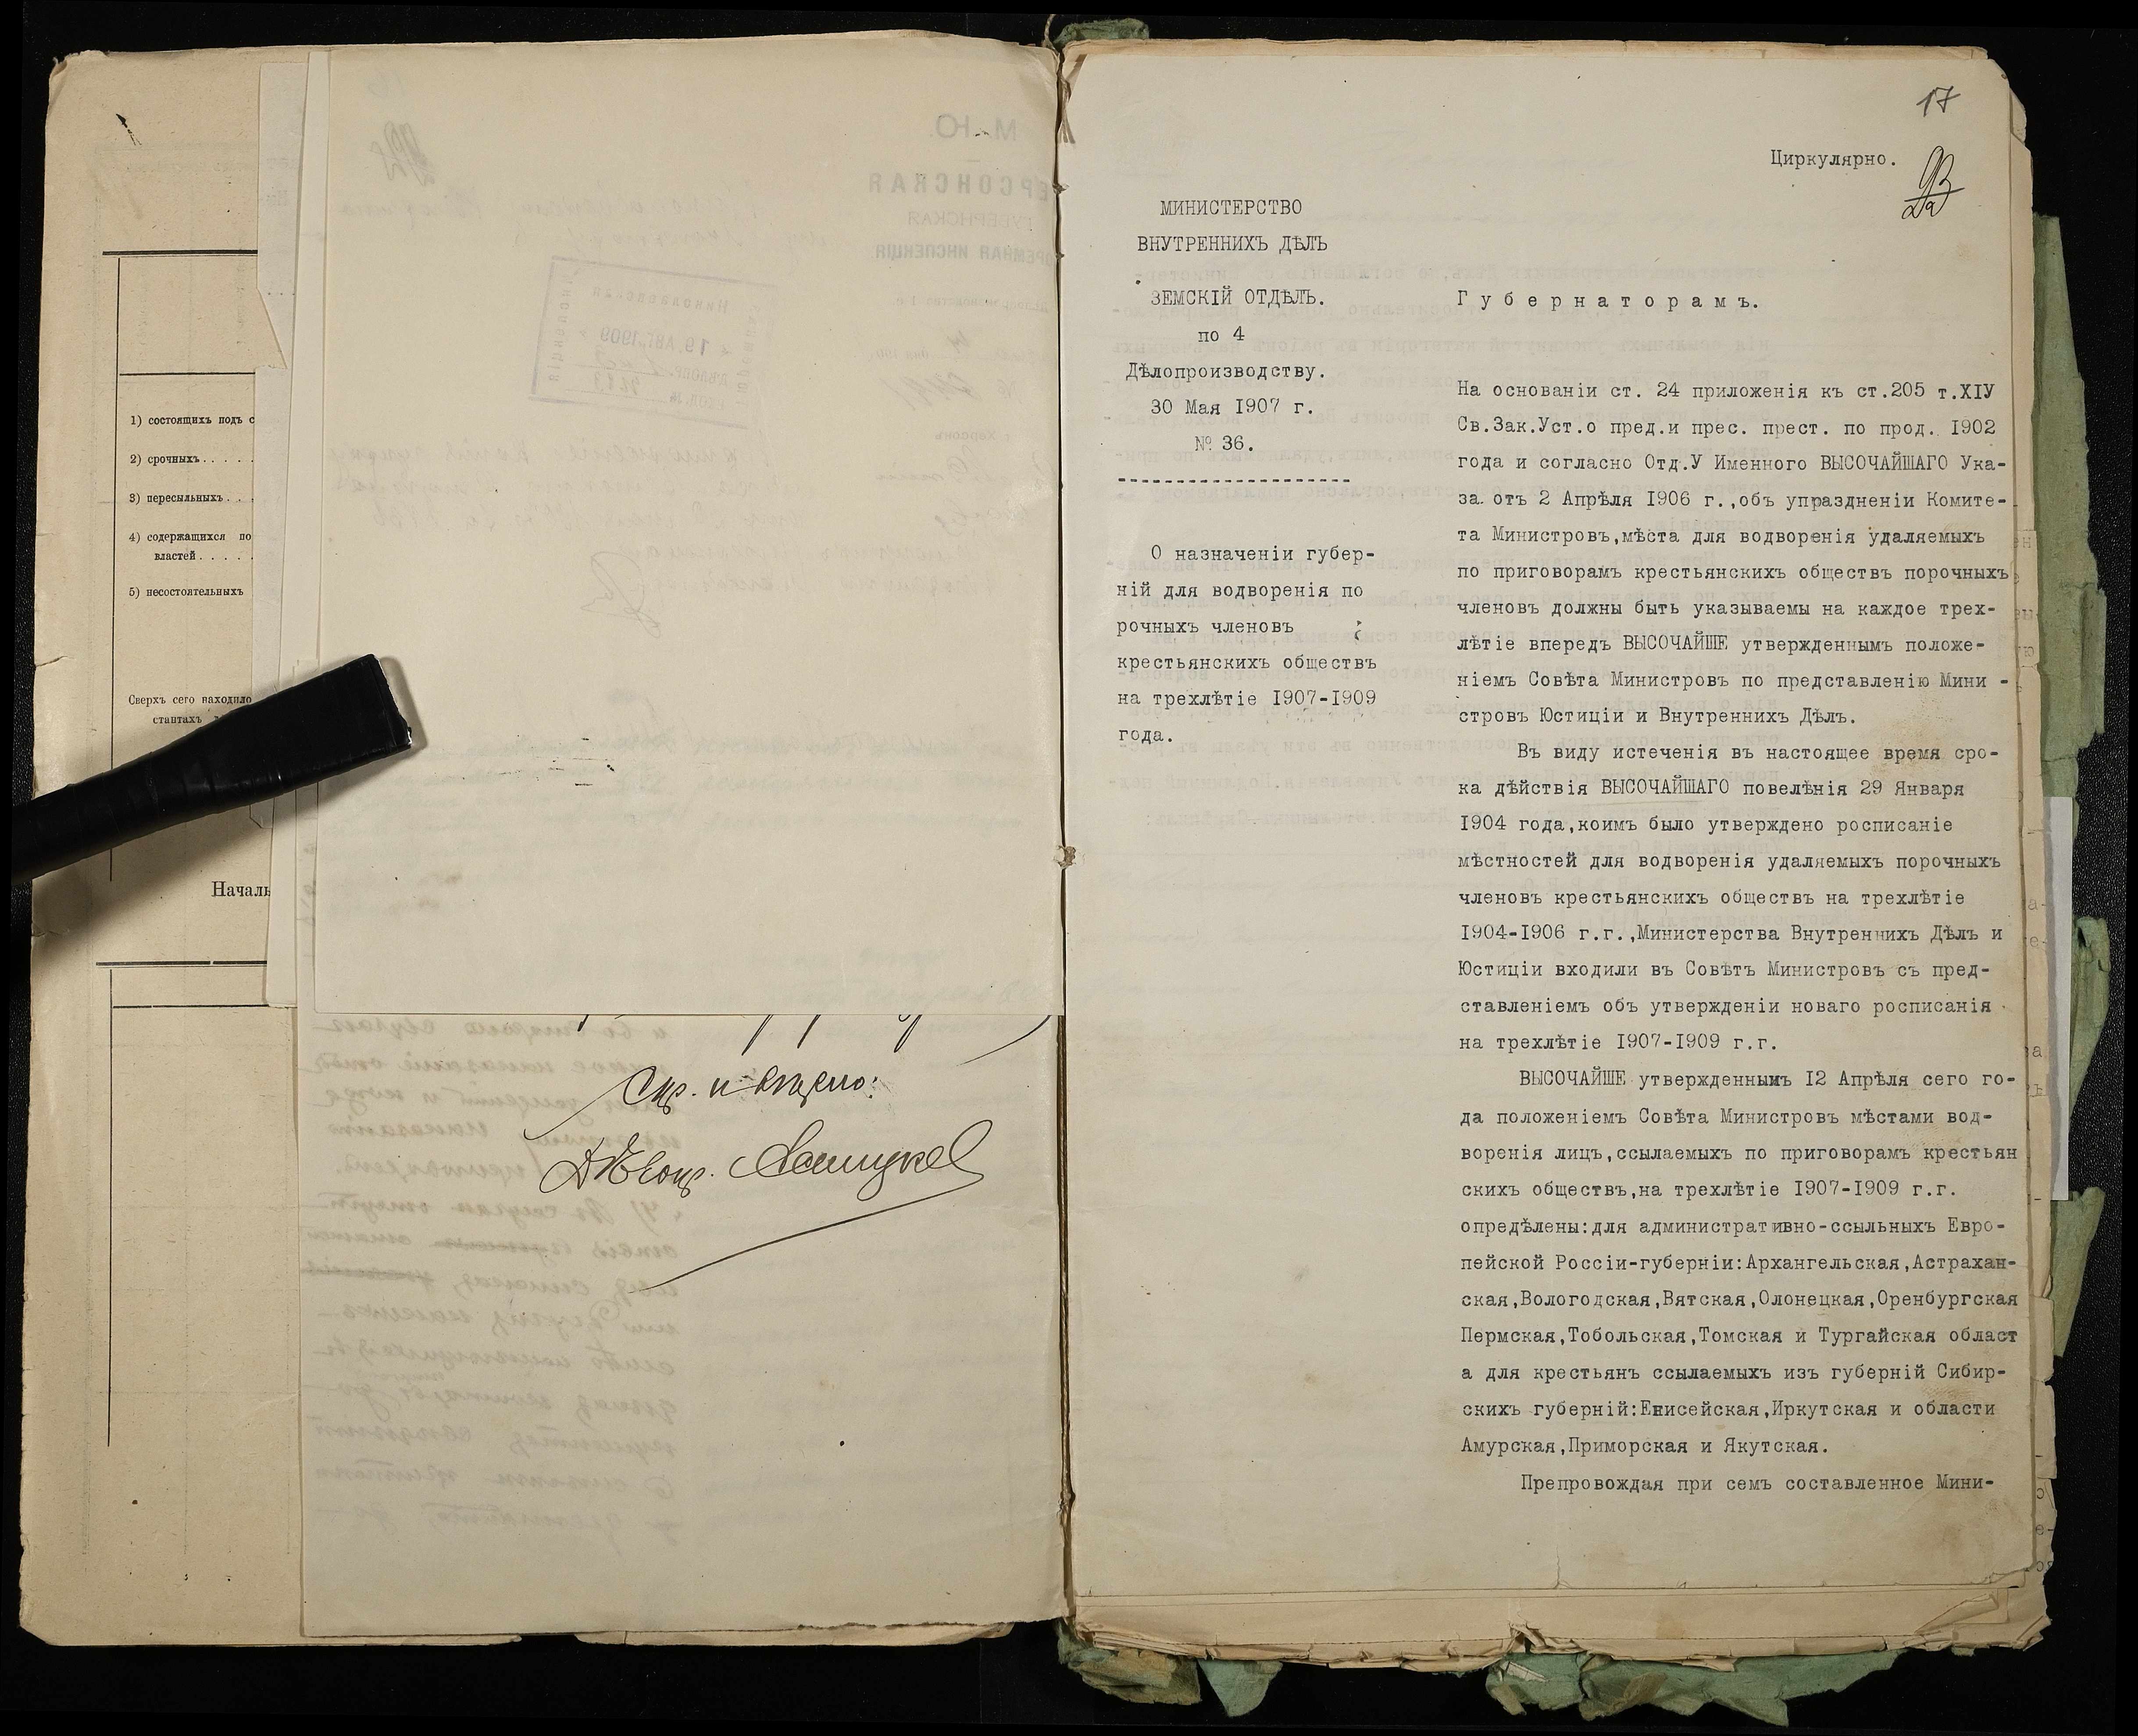 1) состоящихъ подъ с
2) срочныхъ . . . . .
3) пересыльныхъ . . .
4) содержащихся по
властей . . . . .
5) несостоятельныхъ
Сверхъ сего находило
стантахъ
Началь
17
Циркулярно.
МИНИСТЕРСТВО
ВНУТРЕННИХЪ ДѢЛЪ
ЗЕМСКІЙ ОТДѢЛЪ.
по 4
Дѣлопроизводству.
30 Мая 1907 г.
№ 36.
О назначеніи губер-
ній для водворенія по
рочныхъ членовъ
крестьянскихъ обществъ
на трехлѣтіе 1907-1909
года.
Губернаторамъ.
На основаніи ст. 24 приложенія къ ст.205 т.ХІУ
Св.Зак.Уст.о пред.и прес. прест. по прод. 1902
года и согласно Отд.У Именного ВЫСОЧАЙШАГО Ука-
за отъ 2 Апрѣля 1906 г.,объ упраздненіи Комите-
та Министровъ,мѣста для водворенія удаляемыхъ
по приговорамъ крестьянскихъ обществъ порочныхъ
членовъ должны быть указываемы на каждое трех-
лѣтіе впередъ ВЫСОЧАЙШЕ утвержденнымъ положе-
ніемъ Совѣта Министровъ по представленію Мини -
стровъ Юстиціи и Внутреннихъ Дѣлъ.
Въ виду истеченія въ настоящее время сро-
ка дѣйствія ВЫСОЧАЙШАГО повелѣнія 29 Января
1904 года,коимъ было утверждено росписаніе
мѣстностей для водворенія удаляемыхъ порочныхъ
членовъ крестьянскихъ обществъ на трехлѣтіе
1904-1906 г.г.,Министерства Внутреннихъ Дѣлъ и
Юстиціи входили въ Совѣтъ Министровъ съ пред-
ставленіемъ объ утвержденіи новаго росписанія
на трехлѣтіе 1907-1909 г.г.
ВЫСОЧАЙШЕ утвержденнымъ 12 Апрѣля сего го-
да положеніемъ Совѣта Министровъ мѣстами вод-
воренія лицъ,ссылаемыхъ по приговорамъ крестьян
скихъ обществъ,на трехлѣтіе 1907-1909 г.г.
опредѣлены:для административно-ссыльныхъ Евро-
пейской Россіи-губерніи:Архангельская,Астрахан-
ская,Вологодская,Вятская,Олонецкая,Оренбургская
Пермская,Тобольская,Томская и Тургайская област
а для крестьянъ ссылаемыхъ изъ губерній Сибир-
скихъ губерній:Енисейская,Иркутская и области
Амурская,Приморская и Якутская.
Препровождая при семъ составленное Мини-